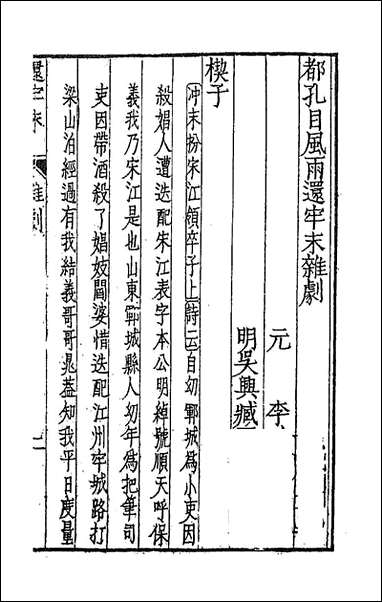 都孔目風雨還牢末雜劇
元 李
明吳興臧
楔子
冲末扮宋江領卒子上詩云自幼鄆城為小吏因
殺娼人遭迭配宋江表字本公明綽號順天呼保
義我乃宋江是也山東鄆城縣人幼年為把筆司
吏因帶酒殺了娼妓閻婆惜迭配江州牢城路打
梁山泊經過有我結義哥哥晁葢知我平日度量
還牢末 雜劇 一